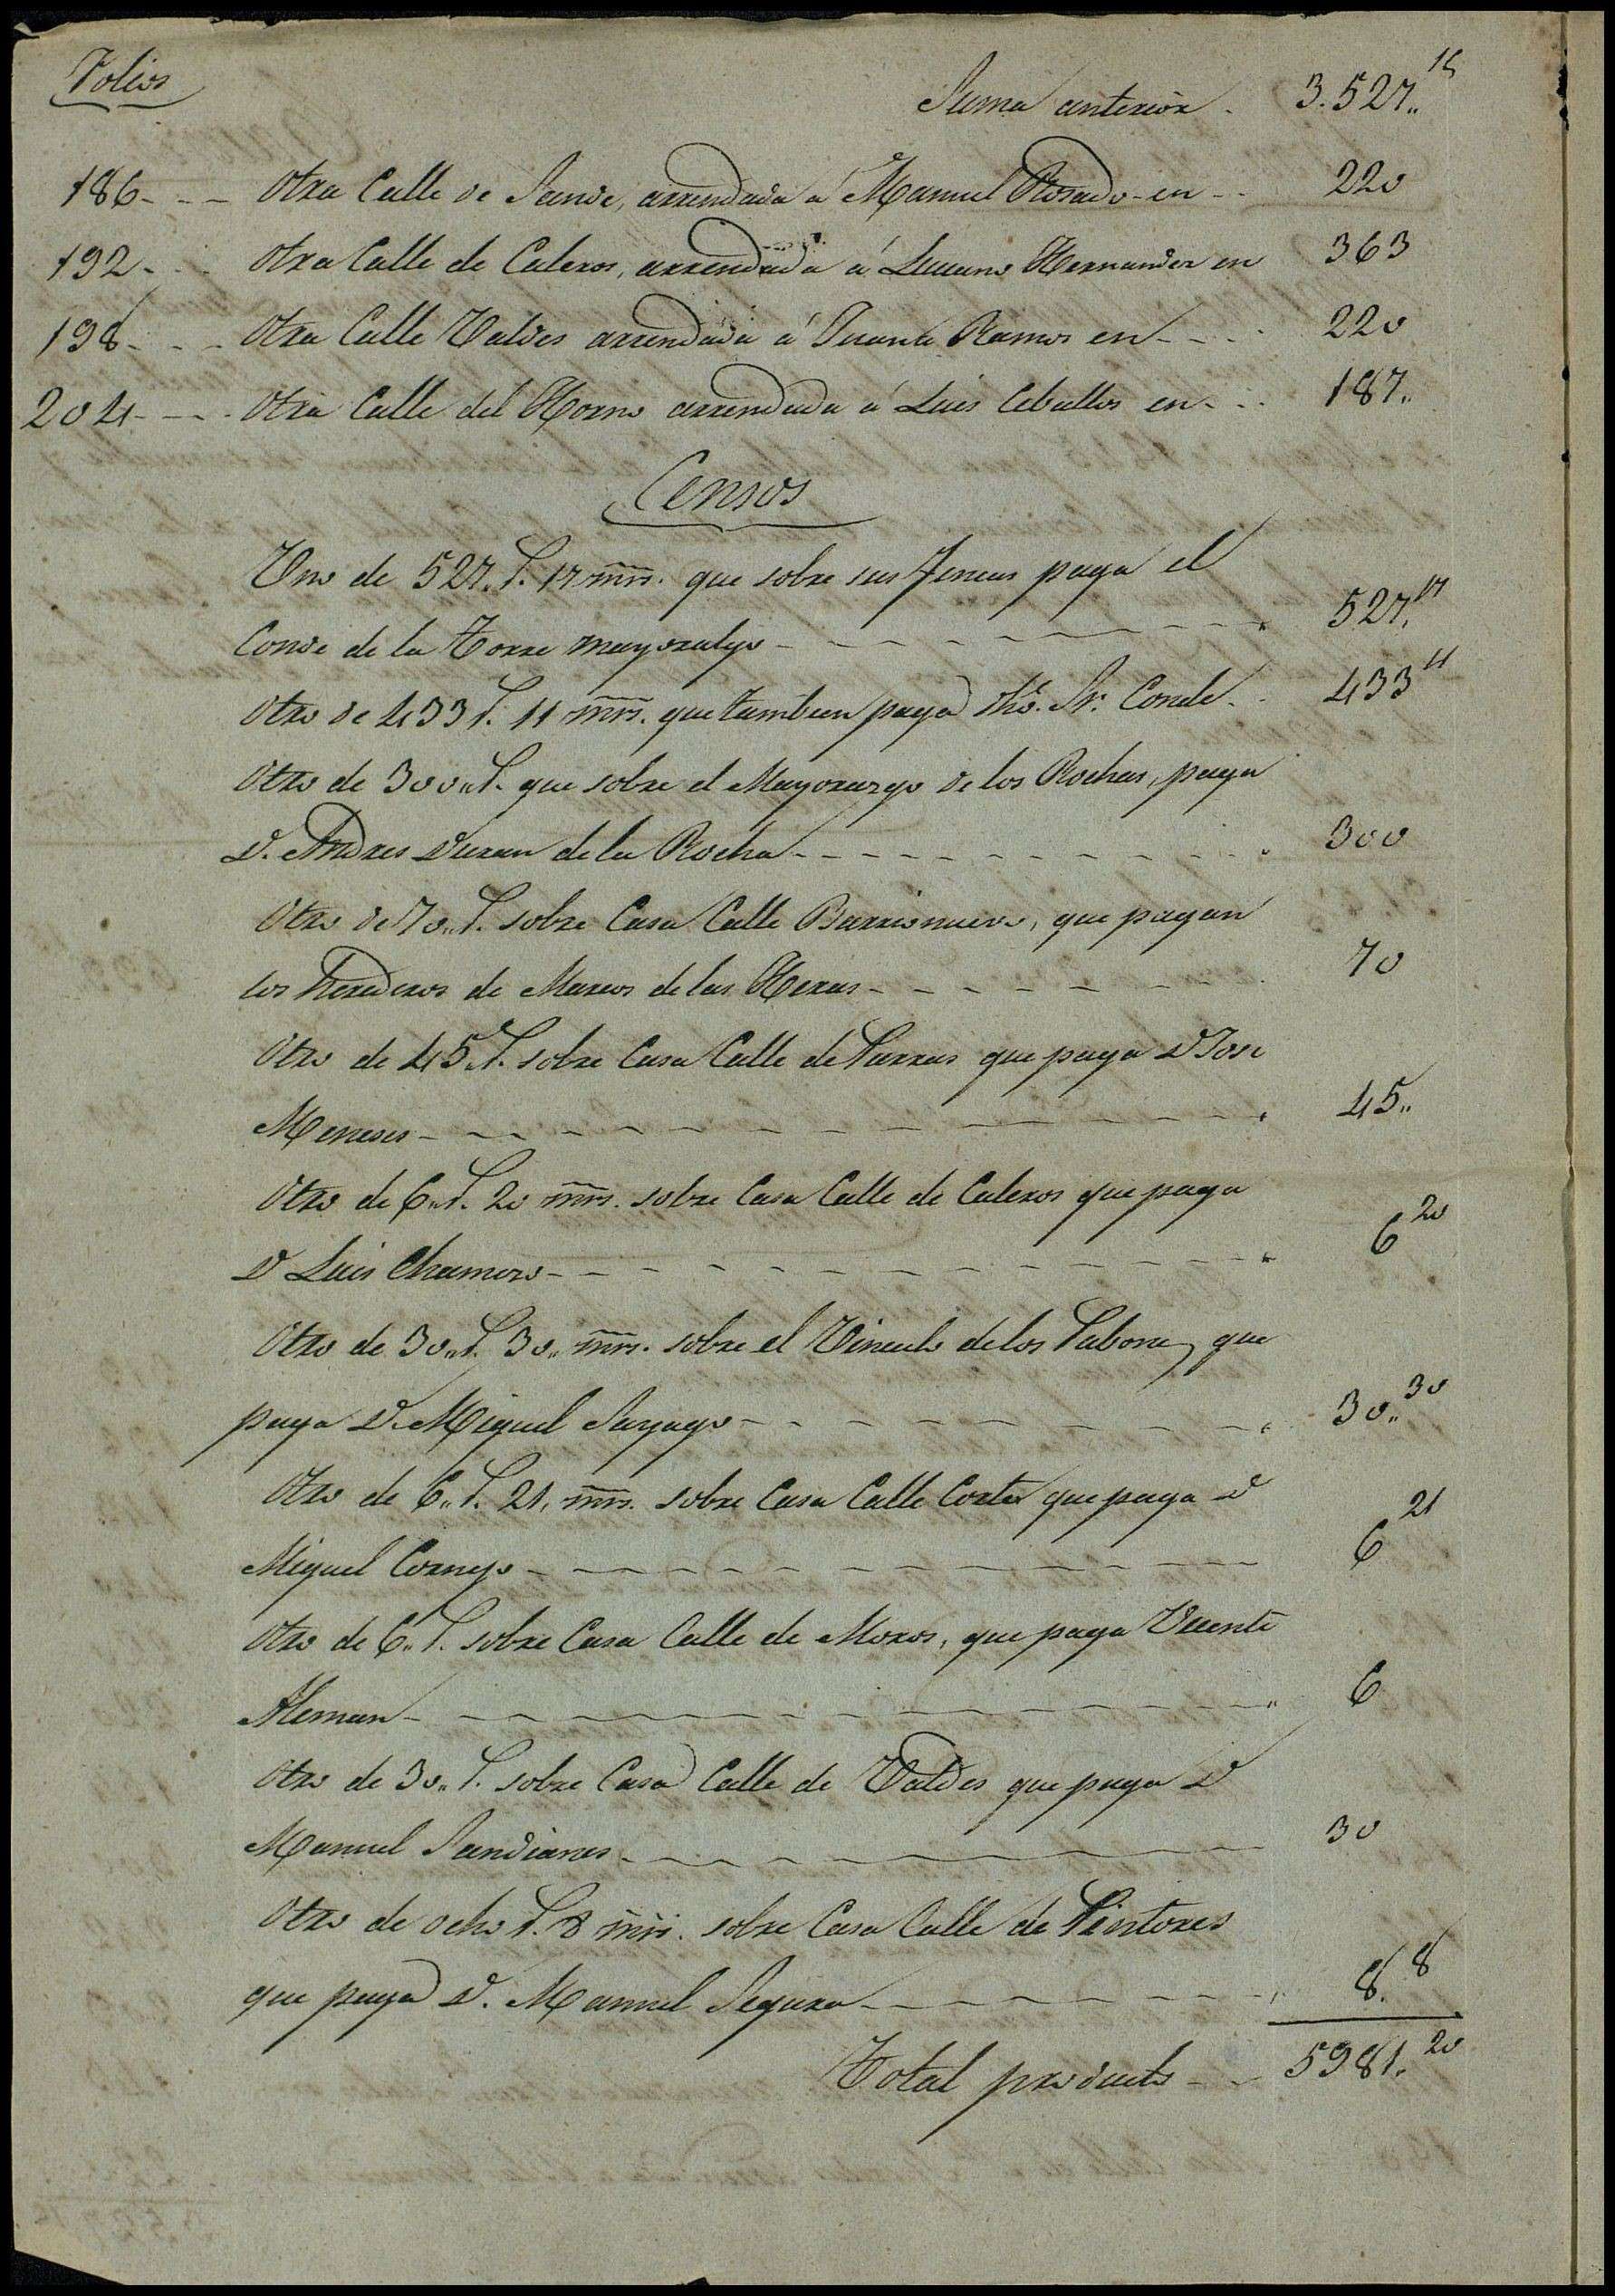 Folios
Suma anterior - 3.527,, 15
186 - - - Otra Calle de Sande, arrendada á Manuel Rosado en - - 220
192 - - - Otra Calle de Caleros, arrendada á Luciano Hernandez en 363
198 - - - Otra Calle Valdes arrendada á Juana Ramos en - - - 220
204 - - - Otra Calle del Horno arrendada á Luis Ceballos en - - - 187,,
Censos
Uno de 527,, r. 17 mrs. que sobre sus fincas paga el
Conde de la Torre mayoralgo - - - - - - - - 527,, 17
Otro de 433 r. 11 mrs. que tambien paga dho. Sr. Conde - - 433 11
Otro de 300,, r. que sobre el Mayorazgo de los Rochas, paga
D. Andres Duran de la Rocha - - - - - - - - 300
Otro de 70,, r. sobre Casa Calle Barrionuevo, que pagan
los herederos de Marcos de las Heras - - - - - - - 70
Otro de 45,, r. sobre Casa Calle de Parras que paga D Jose
Meneses - - - - - - - - - - - 45,,
Otro de 6,, r. 20 mrs. sobre Casa Calle de Caleros que paga
D Luis Chamoro - - - - - - - - - - 6 20
Otro de 30,, r. 30,, mrs. sobre el Vinculo de los Pabon, que
paga D. Miguel Sayago - - - - - - - - 30,, 30
Otro de 6,, r. 21, mrs. sobre Casa Calle Cortes que paga D
Miguel Cornejo - - - - - - - - - - 6 21
Otro de 6,, r. sobre Casa Calle de Moros, que paga Vicente
Aleman - - - - - - - - - - - 6
Otro de 30,, r. sobre Casa Calle de Valdes que paga D
Manuel Sandianes - - - - - - - - - 30
Otro de ocho r. 8 mrs. sobre Casa Calle de Pintores
que paga D. Manuel Segura - - - - - - - 8. 8
Total producto - - 5981. 20